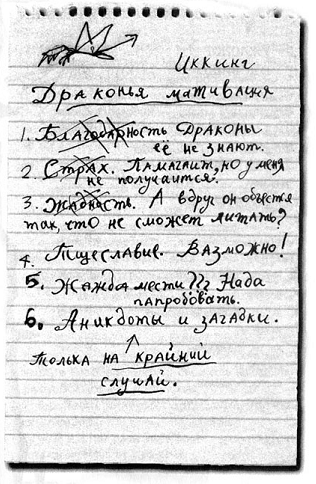 Иккинг
Драконья мативация
1. Благодарность Драконы
её не знают.
2. Страх. Памагаит, но у меня
не получаится.
3. Жадность. А вдруг он объестся
так, что не сможет литать?
4. Тщеславие. Вазможно!
5. Жажда мести?? Нада
папробовать.
6. Аникдоты и загадки.
Толька на крайний
случай.